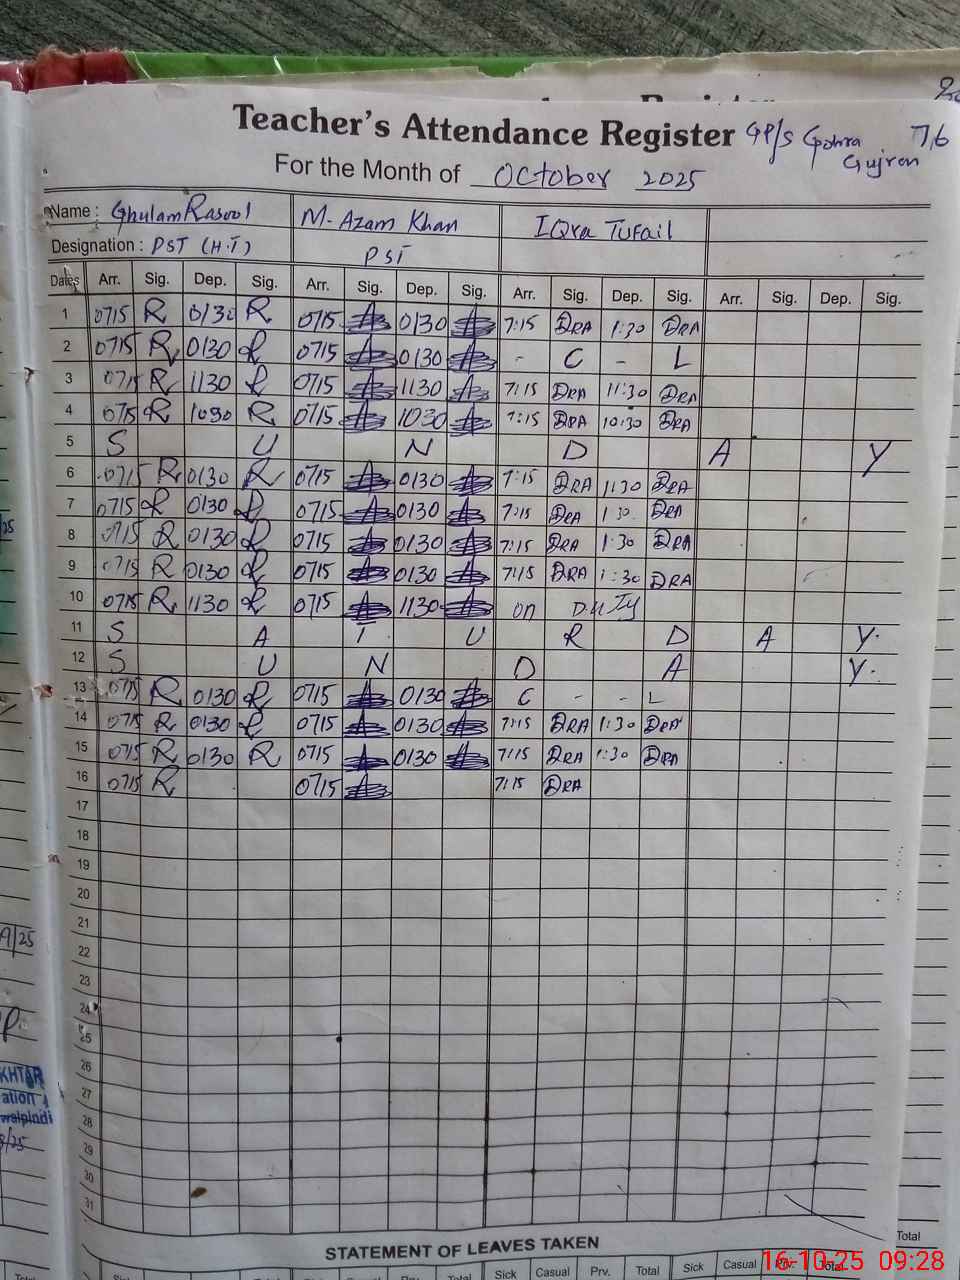 Teacher's Attendance Register GP/S Gohra 76
Gujran
For the Month of October 2025
Name : Ghulam Rasool M. Azam Khan IQra Tufail
Designation : PST (H.T) PST
Dates Arr. Sig. Dep. Sig. Arr. Sig. Dep. Sig. Arr. Sig. Dep. Sig. Arr. Sig. Dep. Sig.
1 0715 R 0130 R 0715 0130 7:15 DRA 1:30 DRA
2 0715 R 0130 R 0715 0130 - C - L
3 0715 R 1130 R 0715 1130 7:15 DRA 11:30 DRA
4 0715 R 1030 R 0715 1030 7:15 DRA 10:30 DRA
5 S U N D A Y
6 0715 R 0130 R 0715 0130 7:15 DRA 1130 DRA
7 0715 R 0130 R 0715 0130 7:15 DRA 1:30 DRA
8 0715 R 0130 R 0715 0130 7:15 DRA 1:30 DRA
9 0715 R 0130 R 0715 0130 7:15 DRA 1:30 DRA
10 0715 R 1130 R 0715 1130 on Duty
11 S A T U R D A Y.
12 S U N D A Y.
13 0715 R 0130 R 0715 0130 C - - L
14 0715 R 0130 R 0715 0130 7:15 DRA 1:30 DRA
15 0715 R 0130 R 0715 0130 7:15 DRA 1:30 DRA
16 0715 R 0715 7:15 DRA
17
18
19
20
21
22
23
24
25
26
27
28
29
30
31
9/25
KHTAR
ation
walpindi
/25
STATEMENT OF LEAVES TAKEN
Total
Sick Casual Prv. Total Sick Casual Prv. Total
16-10-25 09:28